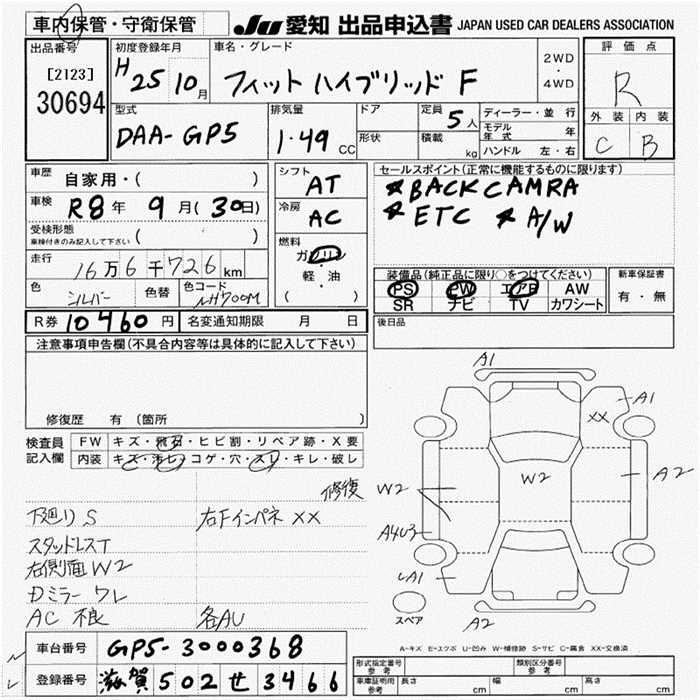 車内保管・守衛保管
JU 愛知 出品申込書 JAPAN USED CAR DEALERS ASSOCIATION
出品番号
[2123]
30694
初度登録年月
H 25 10月
車名・グレード
フィット ハイブリッド F
2WD
・
4WD
評価点
R
外装 内装
C B
型式
DAA-GP5
排気量
1.49 CC
ドア
形状
定員 5人
積載 kg
ディーラー・並行
モデル年式 年
ハンドル 左・右
車歴 自家用・( )
車検 R8年 9月(30日)
受検形態
車検付きのみ記入して下さい ( )
走行 16万6千726km
色 シルバー 色替 色コード NH700M
シフト
AT
冷房
AC
燃料
ガソリン
軽・油
( )
セールスポイント(正常に機能するものに限ります)
★BACK CAMRA
★ETC ★A/W
装備品(純正品に限り○をつけてください)
PS PW エアB AW
SR ナビ TV カワシート
新車保証書
有・無
R券 10460円 名変通知期限 月 日
後日品
注意事項申告欄(不具合内容等は具体的に記入して下さい)
修復歴 有 〔箇所 〕
検査員記入欄
FW キズ・飛石・ヒビ割・リペア跡・X要
内装 キズ・汚レ・コゲ・穴・スレ・キレ・破レ
修復
下廻り S 右Fインパネ XX
スタッドレスT
右側面W2
Dミラー ワレ
AC 不良 各AU
A1
A1
XX
W2
W2
A2
A4U3
A1
A2
スペア
A-キズ E-エクボ U-凹み W-補修跡 S-サビ C-腐食 XX-交換済
車台番号 GP5-3000368
登録番号 滋賀 502 せ 3466
形式指定番号 参考
類別区分番号 参考
車庫証明用 参考 長さ cm 幅 cm 高さ cm